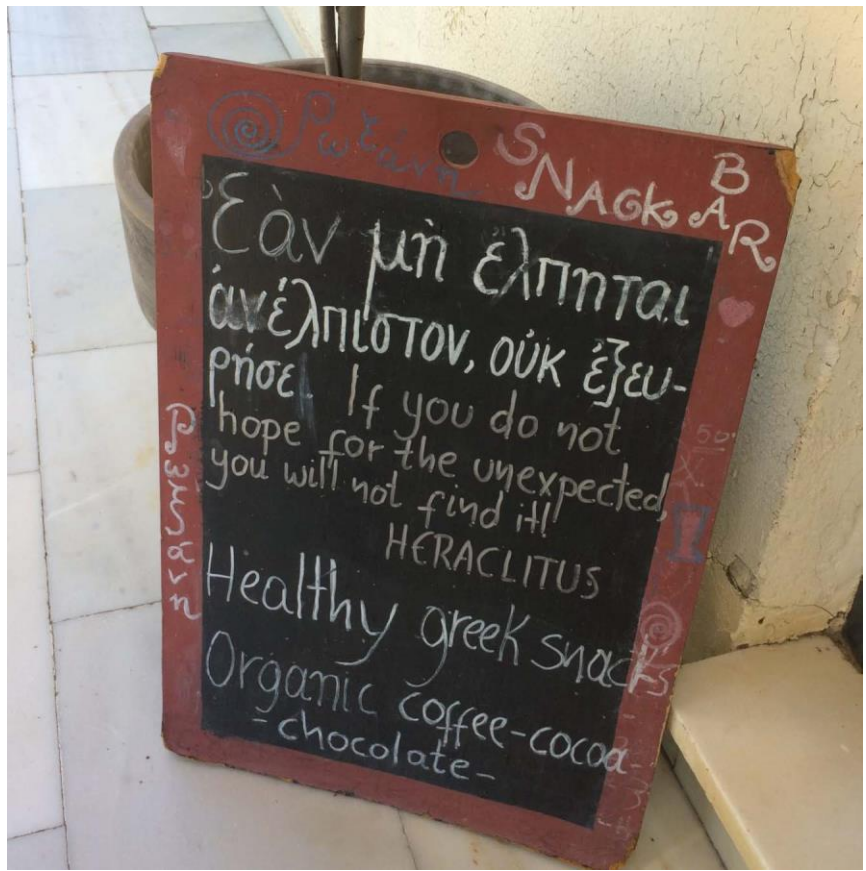 Ρωξάνη SNACK BAR
Ἐὰν μὴ ἔλπηται
ἀνέλπιστον, οὐκ ἐξευ-
ρήσε
If you do not
hope for the unexpected,
you will not find it!
HERACLITUS
Healthy greek snacks
Organic coffee-cocoa-
-chocolate-
Ρωξάνη
50